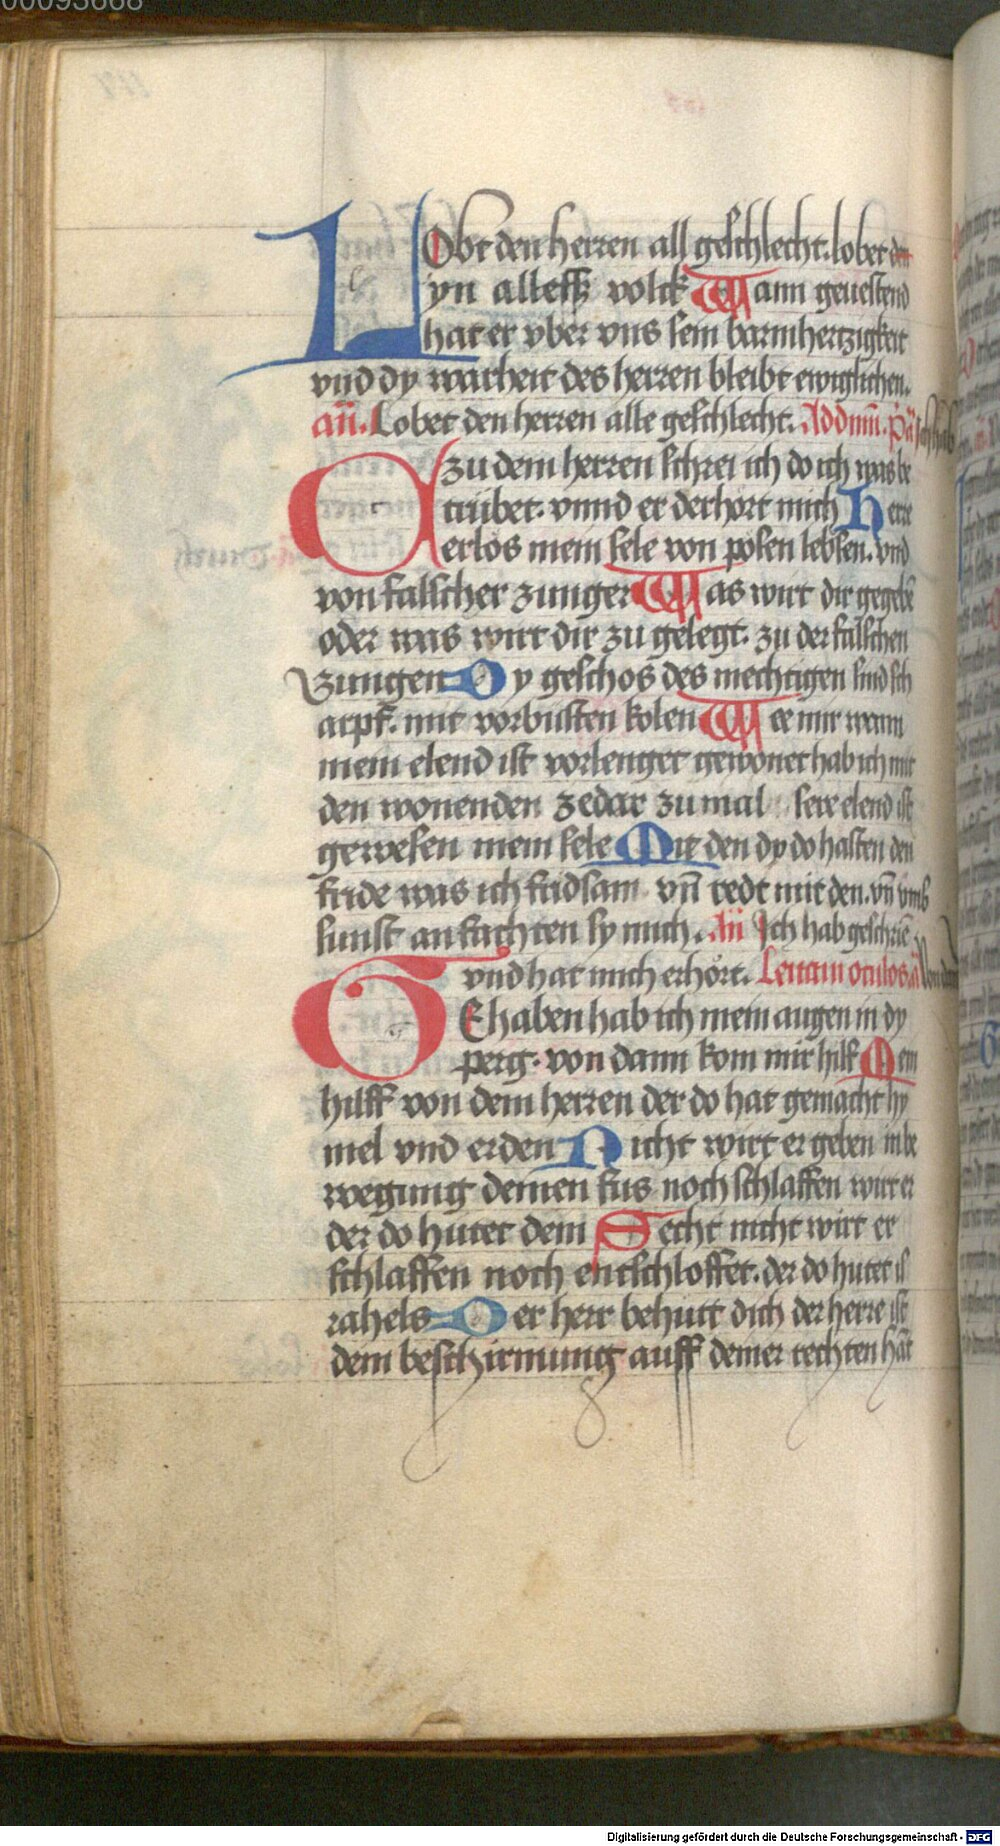 00093668
LObt den herren all geschlecht. lobet den
yn alleß volck Wann geuestend
hat er vber vns sein barmhertzigkeit
vnd dy warheit des herren bleibt ewiglichen.
añ. Lobet den herren alle geschlecht. Ad dnm̄. ps̄
zu dem herren schrei ich do ich was be
trübet. vnnd er derhört mich Herre
erlos mein sele von posen lebsen. vnd
von falscher zungen Was wirt dir gegebē
oder was wirt dir zu gelegt. zu der falschen
zungen Dy geschos des mechtigen sind sch
arpf. mit vorbusten kolen Wee mir wann
mein elend ist vorlenget gewonet hab ich mit
den wonenden zedar zu mal sere elend ist
gewesen mein sele Mit den dy do hasten den
fride was ich fridsam vn̄ redt mit den. vn̄ vmb
sunst anfachten sy mich. Añ Ich hab geschriē
vnd hat mich erhört. Leuaui oculos
Ehaben hab ich mein augen in dy
perg. von dann kom mir hilf Mein
hilff von dem herren der do hat gemacht hy
mel vnd erden Nicht wirt er geben in be
wegung deinen fus noch schlaffen wirt er
der do hutet dein Secht nicht wirt er
schlaffen noch entschloffet. der do hutet is
rahels Der herr behutt dich der herre ist
dein beschirmung auff deiner rechten hāt
Digitalisierung gefördert durch die Deutsche Forschungsgemeinschaft - DFG